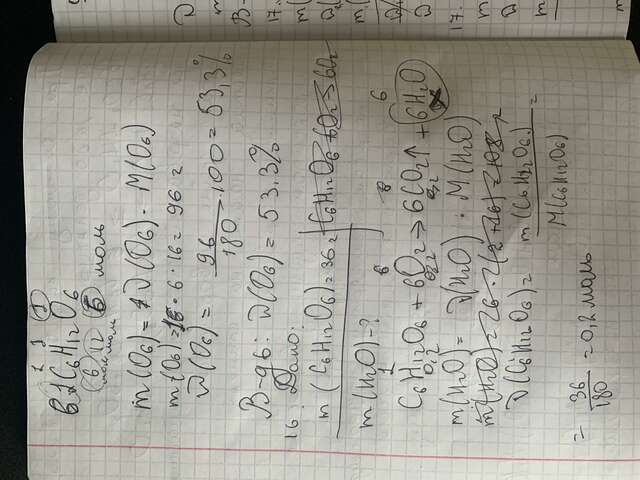 В 1 C₆H₁₂O₆
6 12 6 моль
m(O₆) = ν(O₆) · M(O₆)
m(O₆) = 6 · 16 = 96 г
ω(O₆) = 96/180 · 100 = 53,3%
В-дь: ω(O₆) = 53.3%
16. Дано:
m(C₆H₁₂O₆) = 36 г C₆H₁₂O₆ + 6O₂ → 6CO₂
m(H₂O) - ?
1 6 6 6
C₆H₁₂O₆ + 6O₂ → 6CO₂↑ + 6H₂O
0,2
m(H₂O) = ν(H₂O) · M(H₂O)
ν(C₆H₁₂O₆) = m(C₆H₁₂O₆)/M(C₆H₁₂O₆) =
= 36/180 = 0,2 моль
17.